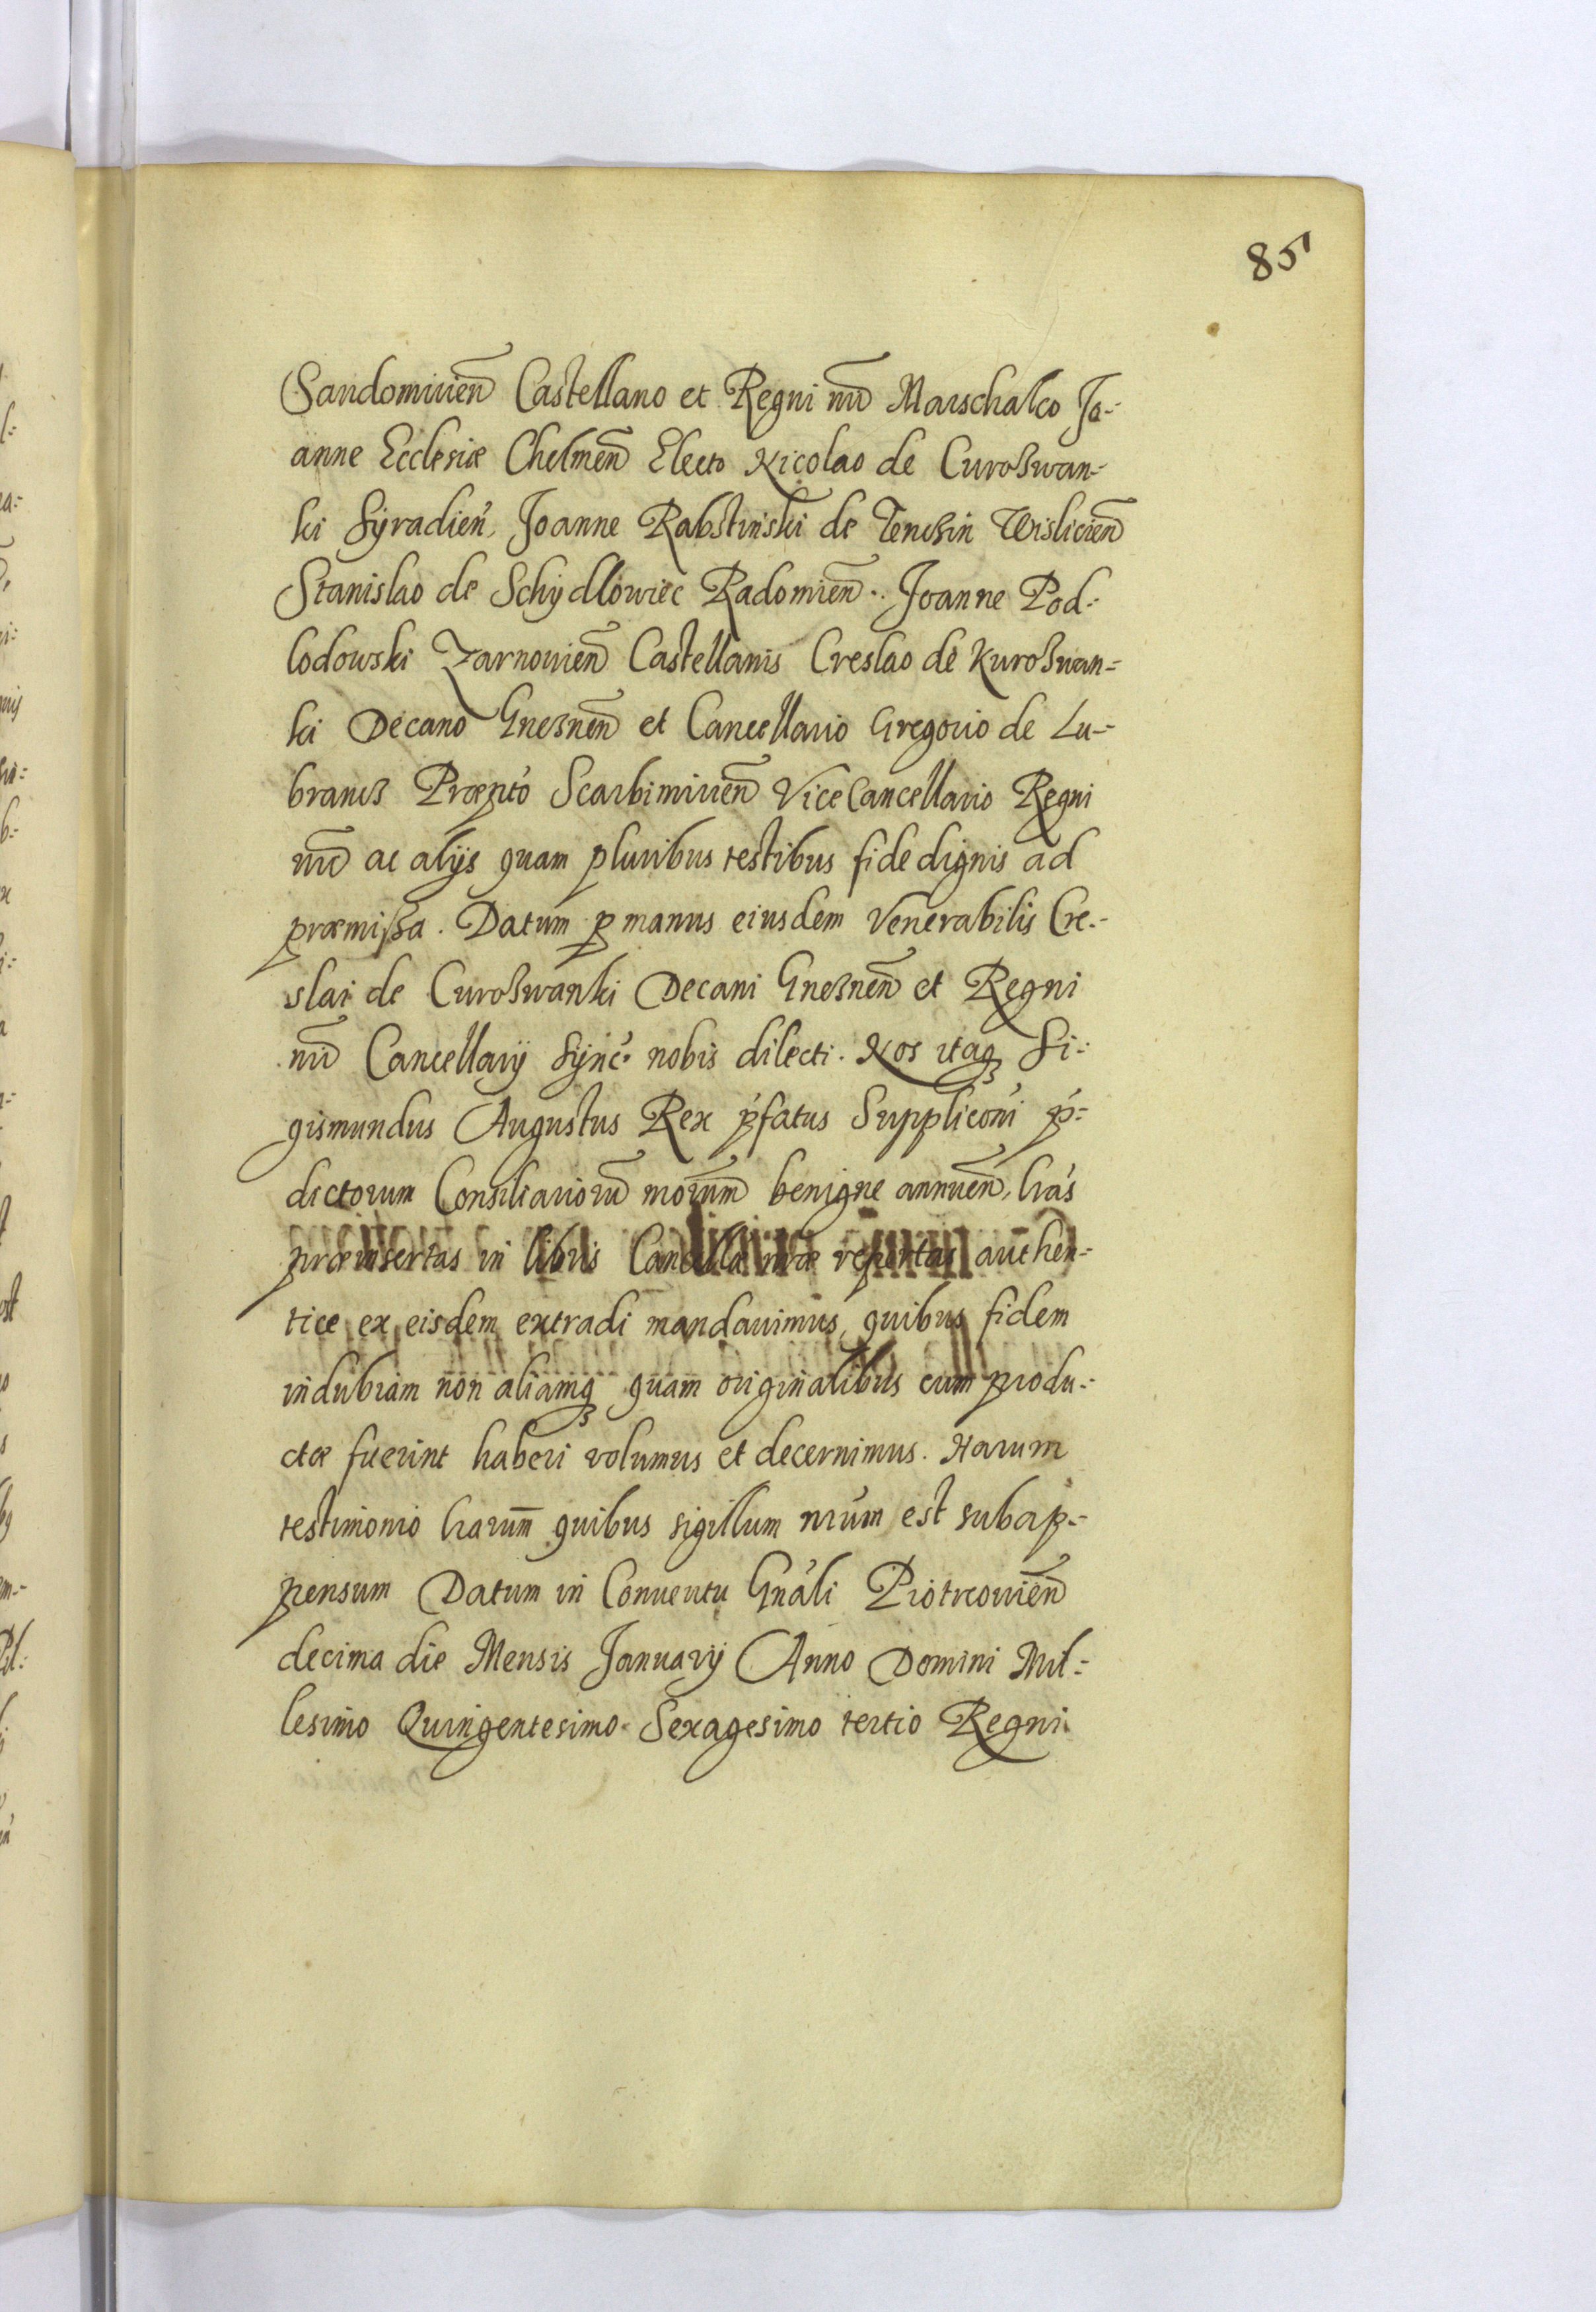 85
Sandomirien̄ Castellano et Regni nr̄i Marschalco Jo-
anne Ecclesiæ Chelmen̄ Electo Nicolao de Curoßwan-
ki Syradien̄, Joanne Rabstinski de Tenchin Wislicien̄
Stanislao de Schydlowiec Radomien̄. Joanne Pod-
lodowski Zarnovien̄ Castellanis Creslao de Kuroßwan-
ki Decano Gneznen̄ et Cancellario Gregorio de Lu-
brancz Præpto Scarbimirien̄ ViceCancellario Regni
nr̄i ac alijs quam pluribus testibus fide dignis ad
præmißa. Datum p manus eiusdem Venerabilis Cre-
slai de Curoßwanki Decani Gneznen̄ et Regni
nr̄i Cancellarij Sync̄e nobis dilecti. Nos itaq Si-
gismundus Augustus Rex ṕfatus Supplicōni ṕ-
dictorum Consiliariorū nrōrum benigne annuen̄, lrás
præinsertas in libris Cancellæ nr̄æ repertas authen-
tice ex eisdem extradi mandavimus, quibus fidem
indubiam non aliamq quam originalibus cum produ-
ctæ fuerint haberi volumus et decernimus. Harum
testimonio lrarum̄ quibus sigillum nrúm est subap-
pensum Datum in Conventu Gnáli Piotrcovien̄
decima die Mensis Januarij Anno Domini Mil-
lesimo Quingentesimo Sexagesimo tertio Regni